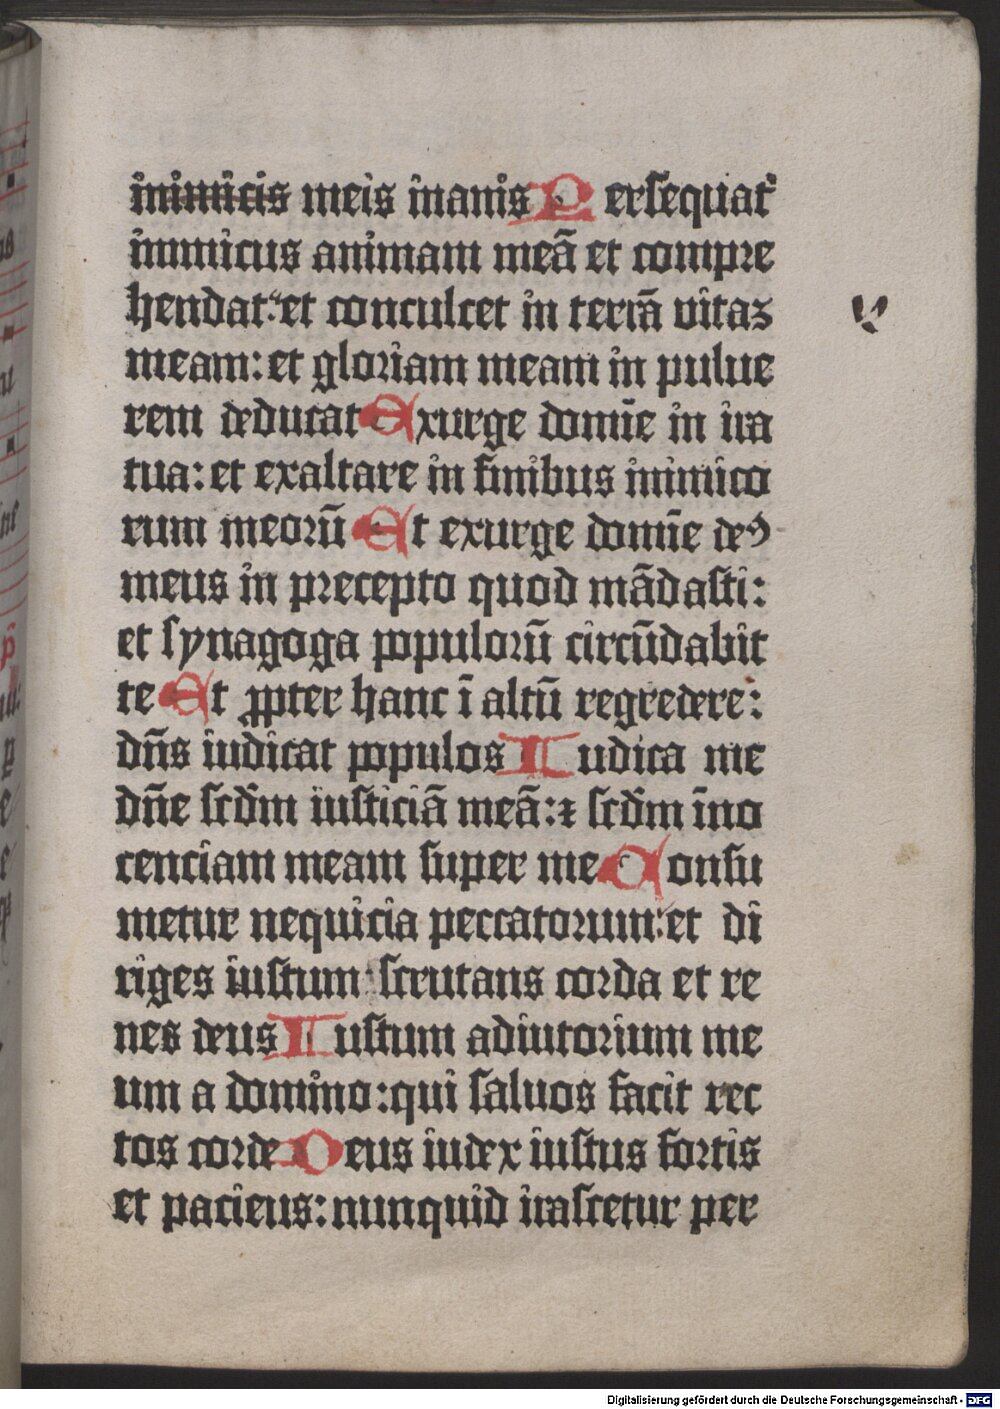 inimicis meis inanis Persequat᷑
inimicus animam meã et compre
hendat: et conculcet in terrã vitaz
meam: et gloriam meam in pulue
rem deducat Exurge domĩe in ira
tua: et exaltare in finibus inimico
rum meorũ Et exurge domĩe deꝰ
meus in precepto quod mãdasti:
et synagoga populorũ circũdabit
te Et ꝓpter hanc ĩ altũ regredere:
dñs iudicat populos Iudica me
dñe scdm̃ iusticiã meã: ⁊ scdm̃ ĩno
cenciam meam super me Consu
metur nequicia peccatorum: et di
riges iustum scrutans corda et re
nes deus Iustum adiutorium me
um a domino: qui saluos facit rec
tos corde Deus iudex iustus fortis
et paciens: nunquid irascetur per
Digitalisierung gefördert durch die Deutsche Forschungsgemeinschaft - DFG